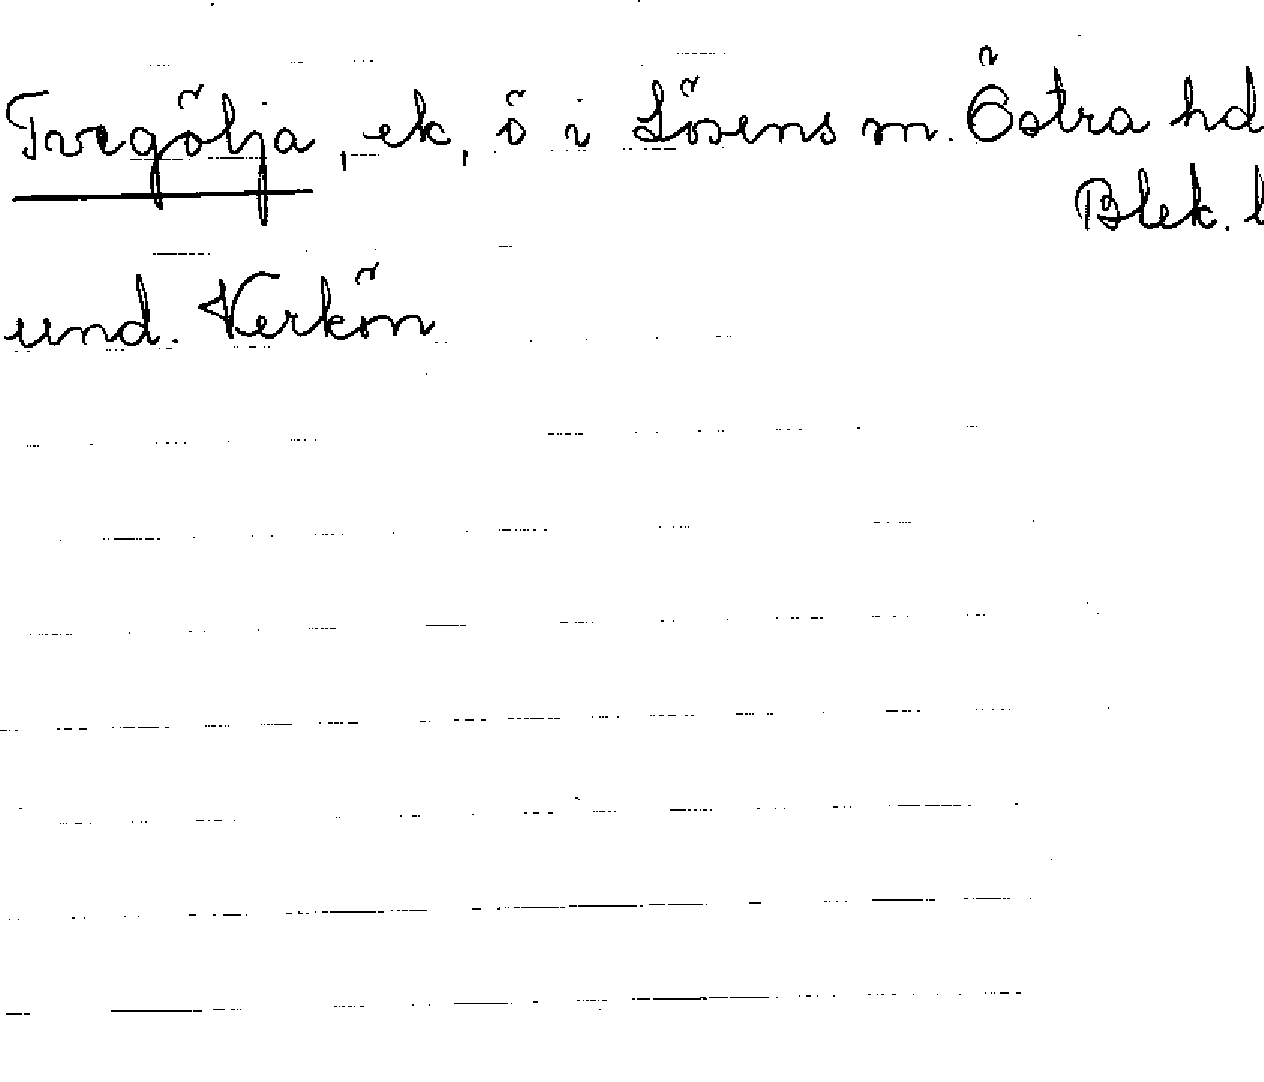 Tvegölja, ek, ö i Lösens sn. Östra hd
Blek. l
und. Verkön